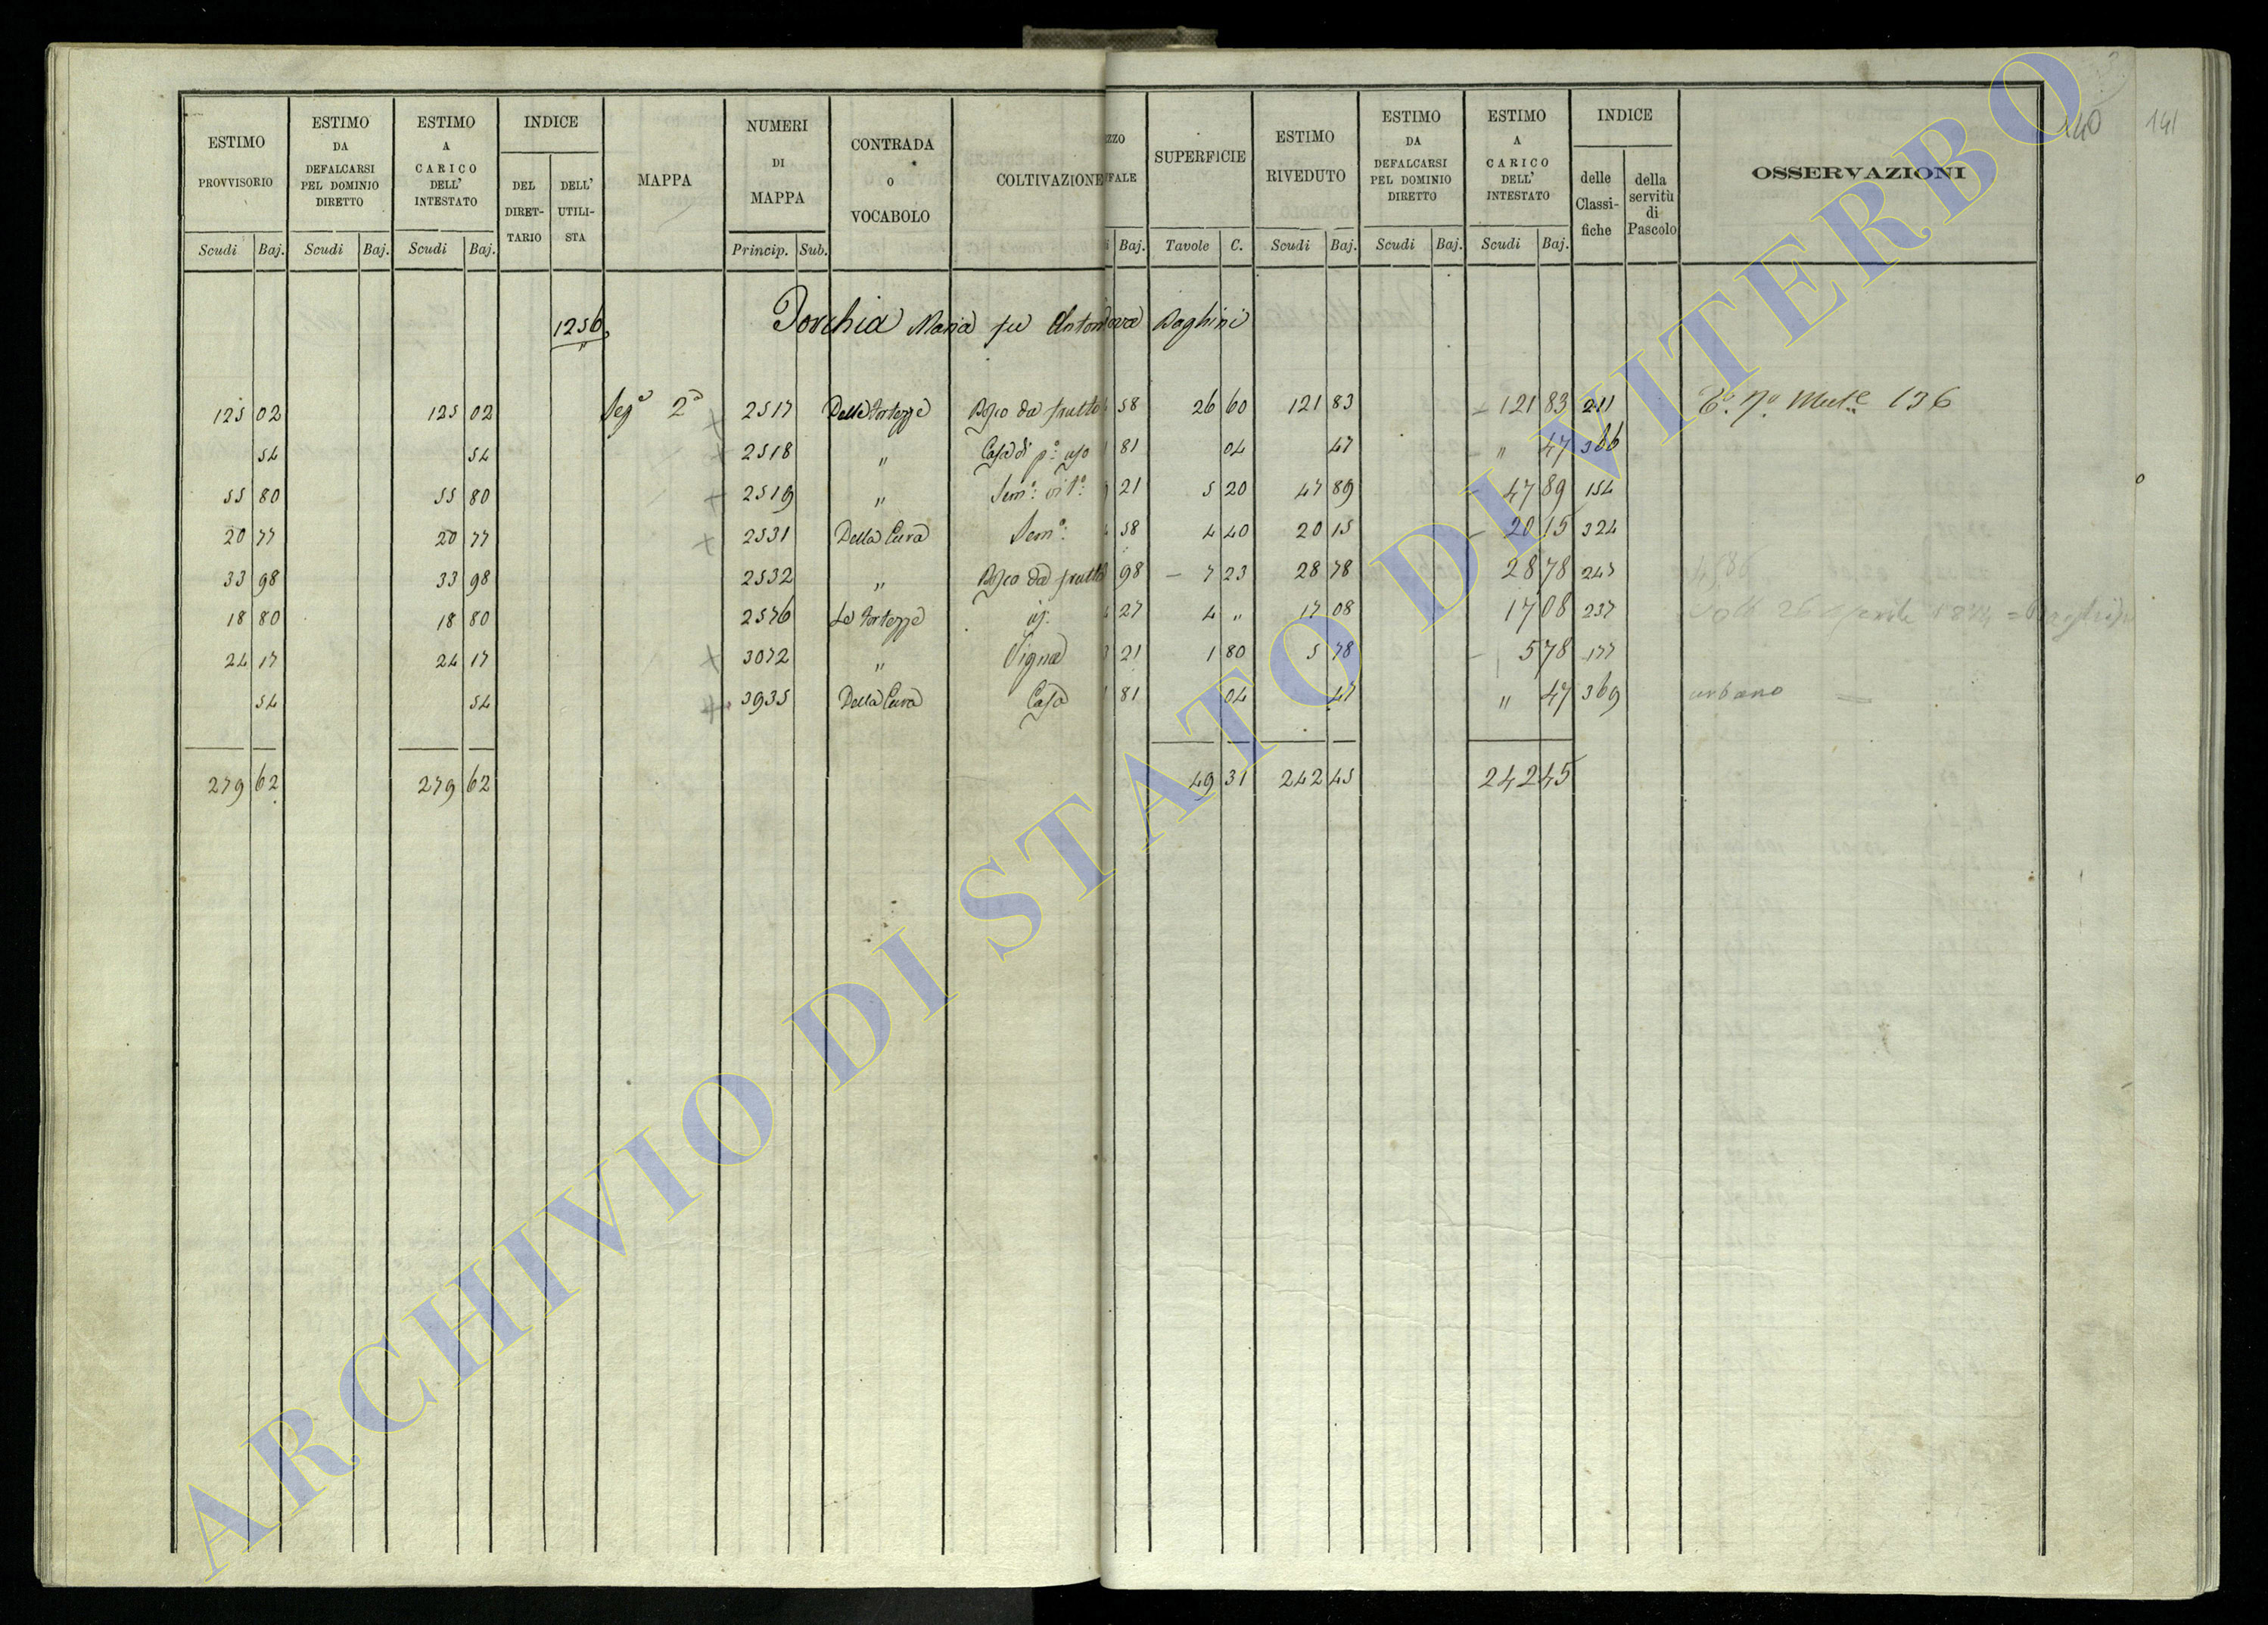 140 141
ESTIMO PROVVISORIO Scudi Baj.
ESTIMO DA DEFALCARSI PEL DOMINIO DIRETTO Scudi Baj.
ESTIMO A CARICO DELL' INTESTATO Scudi Baj.
INDICE DEL DIRET- TARIO DELL' UTILI- STA
MAPPA
NUMERI DI MAPPA Princip. Sub.
CONTRADA O VOCABOLO
COLTIVAZIONE
ZZO FALE Baj.
SUPERFICIE Tavole C.
ESTIMO RIVEDUTO Scudi Baj.
ESTIMO DA DEFALCARSI PEL DOMINIO DIRETTO Scudi Baj.
ESTIMO A CARICO DELL' INTESTATO Scudi Baj.
INDICE delle Classi- fiche della servitù di Pascolo
OSSERVAZIONI
1256 Porchia Maria fu Anton Baghini
125 02 125 02 Sez.e 2a 2517 Delle Fortezze Bosco da frutto 58 26 60 121 83 121 83 211 136
54 54 2518 " Casa di p.o uso 81 04 47 " 47 366
55 80 55 80 2519 " Sem.o vit.o 21 5 20 47 89 47 89 154
20 77 20 77 2531 Della Cura Sem.o 58 4 40 20 15 20 15 324
33 98 33 98 2532 " Bosco da frutto 98 7 23 28 78 28 78 247
18 80 18 80 2576 Le Fortezze 27 4 " 17 08 17 08 237
24 17 24 17 3072 " Vigna 21 1 80 5 78 5 78 177
54 54 3935 Della Cura Casa 81 04 47 " 47 369 urbano
279 62 279 62 49 31 242 45 242 45
ARCHIVIO DI STATO DI VITERBO